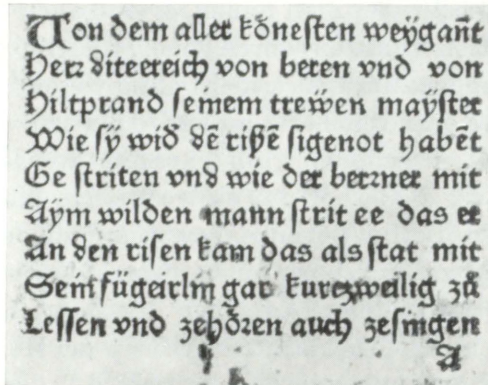 Von dem aller kỏnesten weÿgañt
Herꝛ ditereich von beren vnd von
Hiltprand seinem treẅen maÿster
Wie sÿ wid dē rißē sigenot habēt
Ge striten vnd wie der berꝛner mit
Aÿm wilden mann strit ee das er
An den risen kam das als stat mit
Sein gar kurczweilig zů
Lessen vnd zehỏꝛen auch zesingen
A